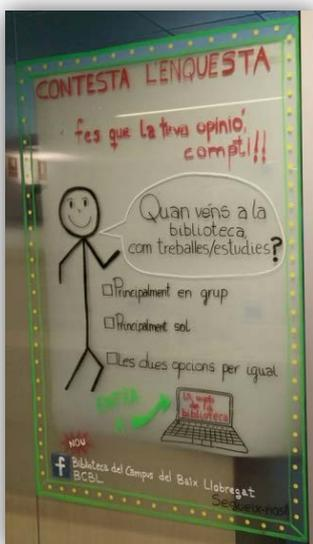 CONTESTA L'ENQUESTA
fes que la teva opinió,
compti!!
Quan vens a la
biblioteca,
com treballes/estudies?
Principalment en grup
Principalment sol
Les dues opcions per igual
ENTRA
A
la web
de la
biblioteca
NOU
f Biblioteca del Campus del Baix Llobregat
BCBL
Segueix-nos!